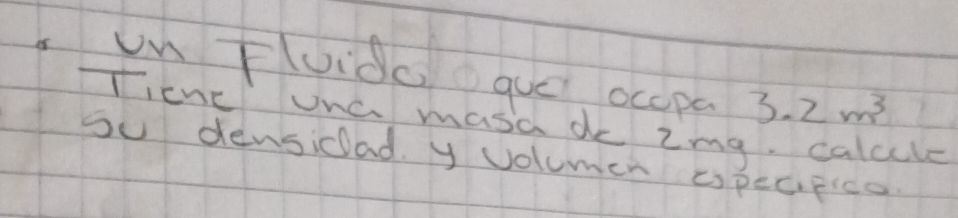 Un Fluido que ocupa 3.2 m³
Tiene una masa de 2mg. calcule
su densidad. y volumen especifico.